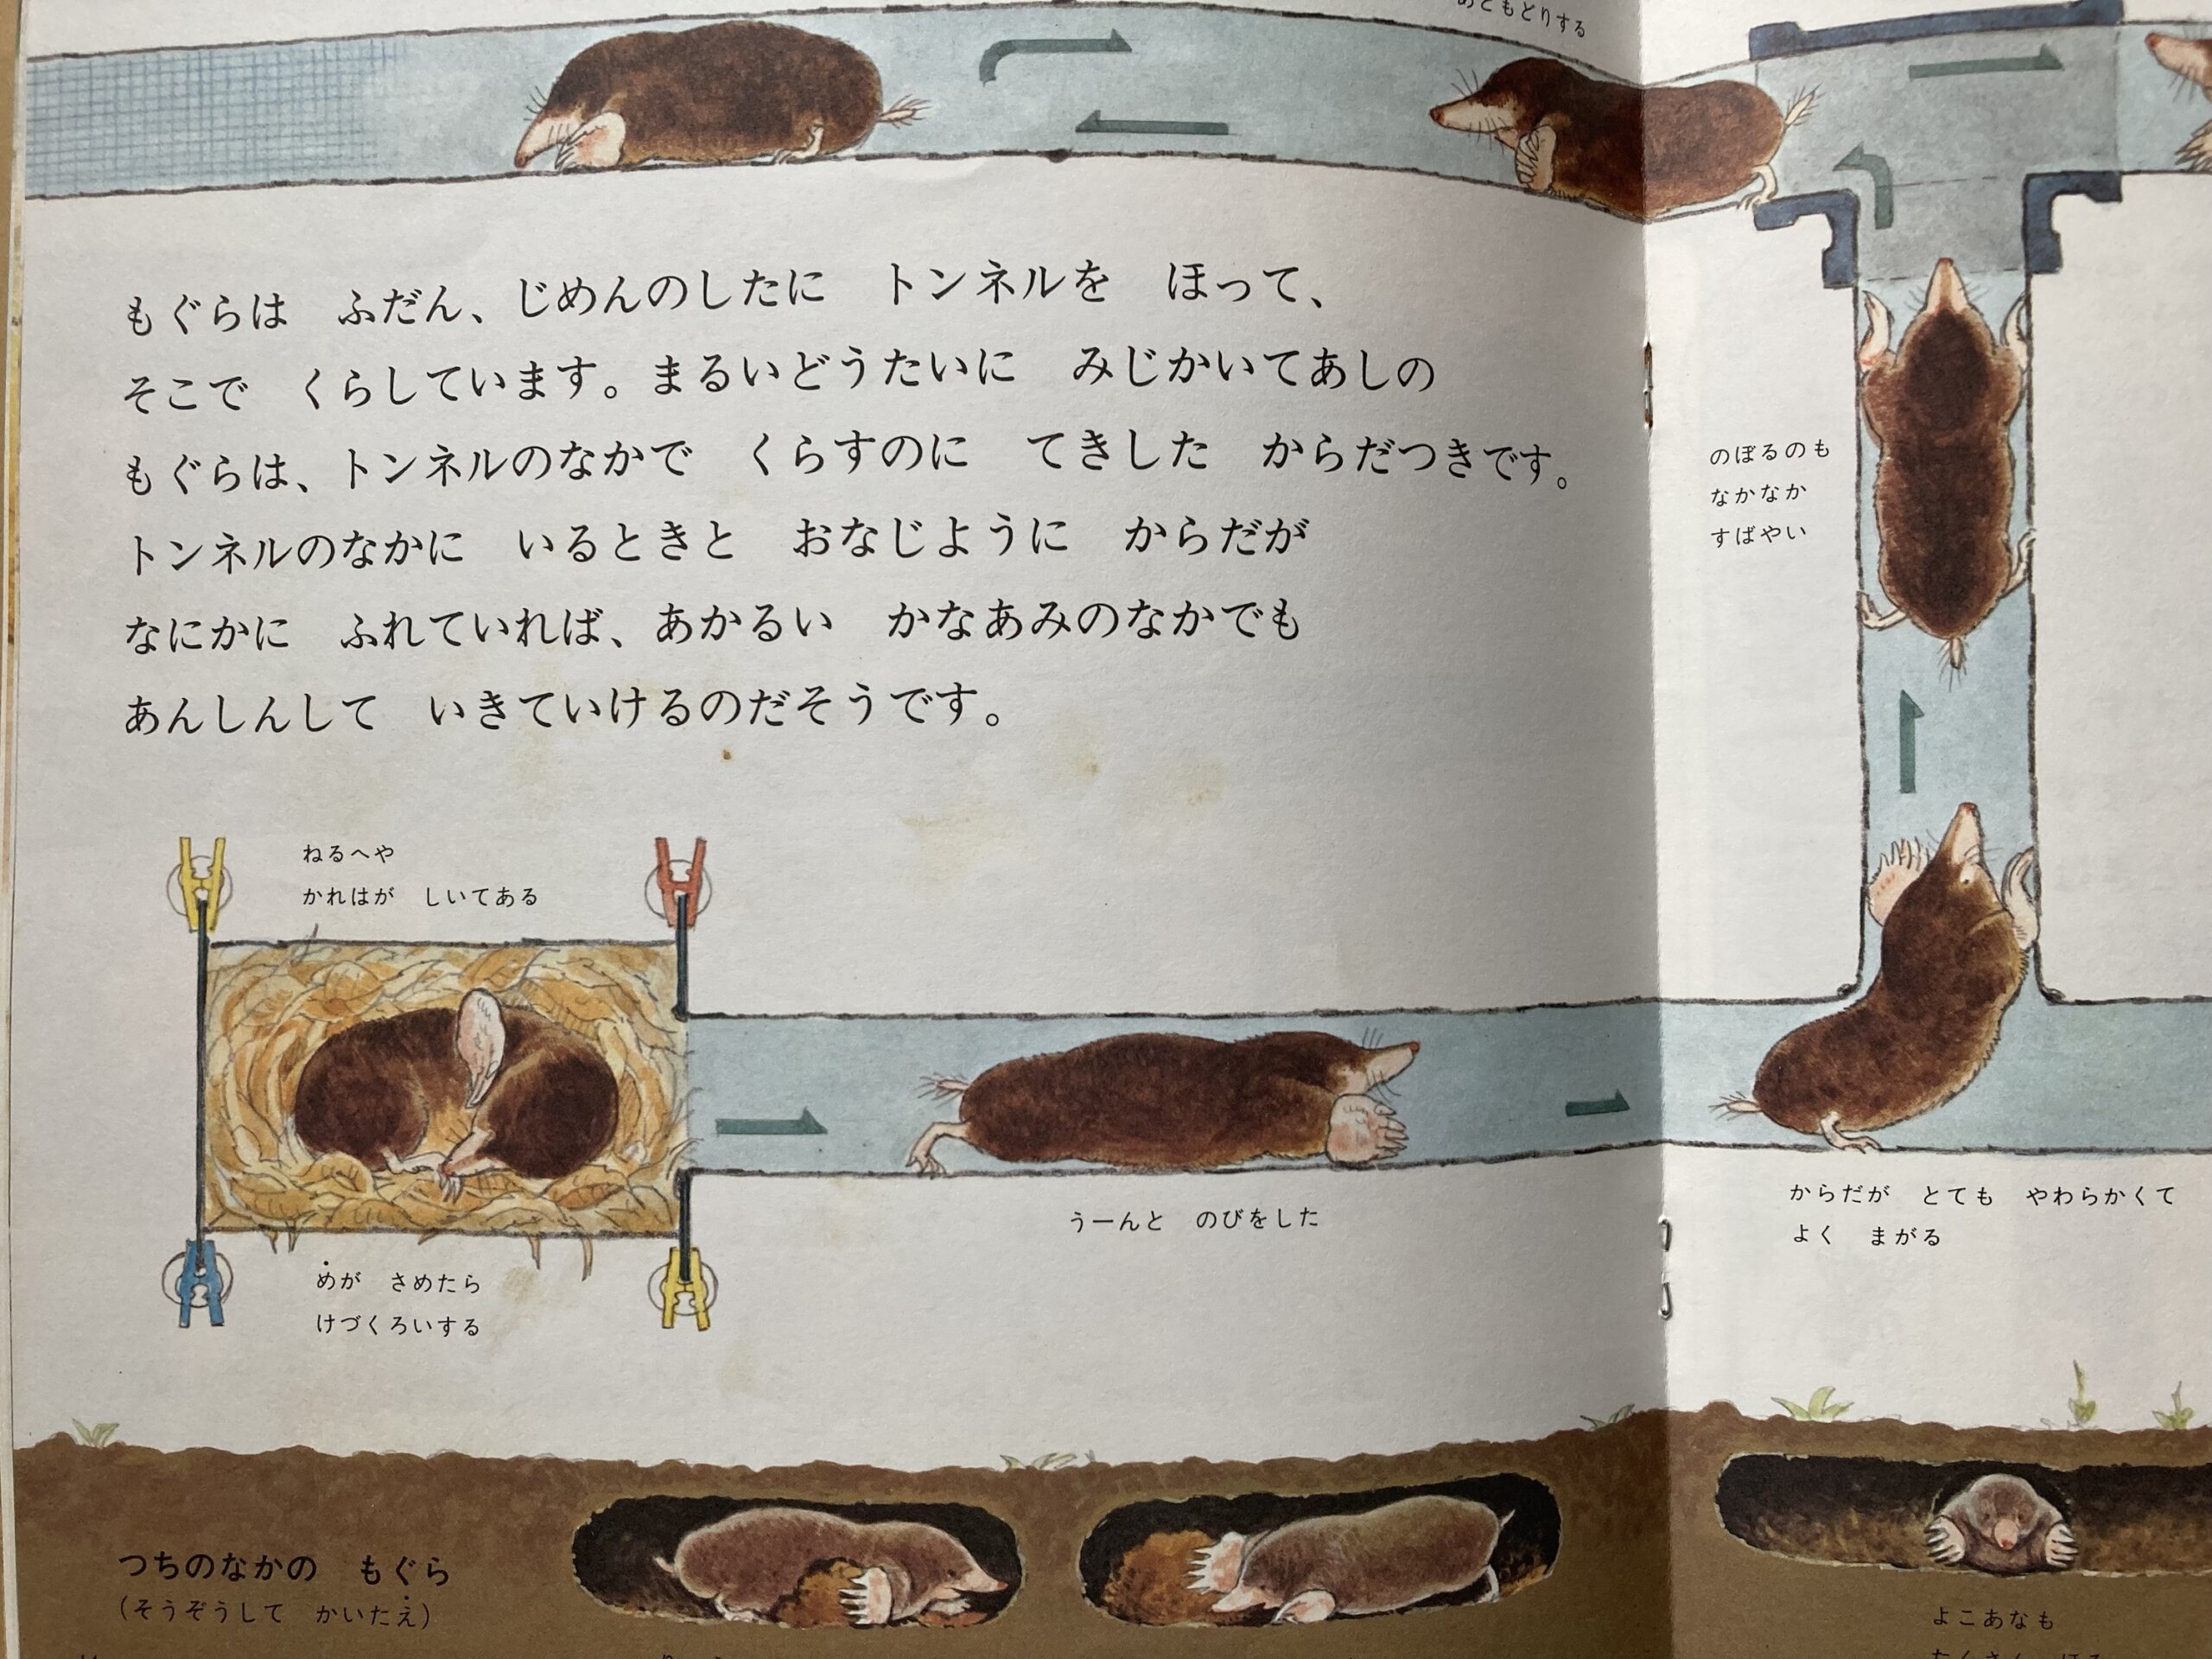 あともどりする
もぐらは　ふだん、じめんのしたに　トンネルを　ほって、
そこで　くらしています。まるいどうたいに　みじかいてあしの
もぐらは、トンネルのなかで　くらすのに　てきした　からだつきです。
トンネルのなかに　いるときと　おなじように　からだが
なにかに　ふれていれば、あかるい　かなあみのなかでも
あんしんして　いきていけるのだそうです。
のぼるのも
なかなか
すばやい
ねるへや
かれはが　しいてある
めが　さめたら
けづくろいする
うーんと　のびをした
からだが　とても　やわらかくて
よく　まがる
つちのなかの　もぐら
(そうぞうして　かいたえ)
よこあなも